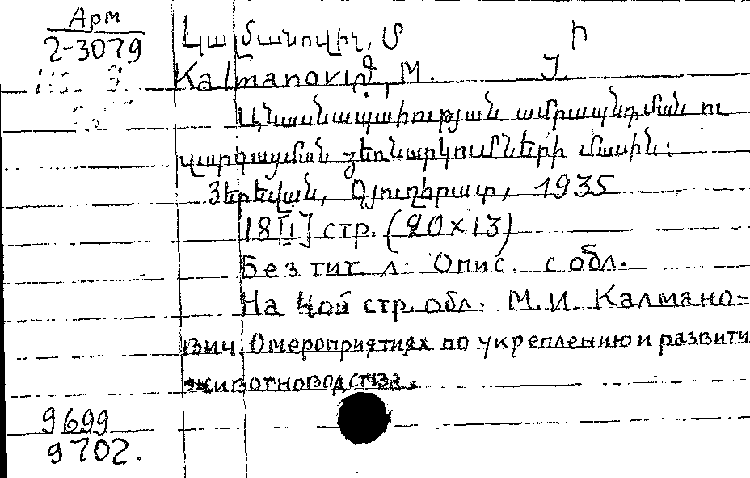 Арм
2-3079
Կալմանովիչ, Մ Ի
Kalmanovič, M. I.
Անասնապահության ամրապնդման ու
զարգացման ձեռնարկումների մասին:
Յերեվան, Գյուղհրատ, 1935
18[I] стр. (20×13)
Без тит л. Опис. с обл.
На 4ой стр. обл. М. И. Калмано=
вич. О мероприятиях по укреплению и развити
животноводства.
9699
9702.